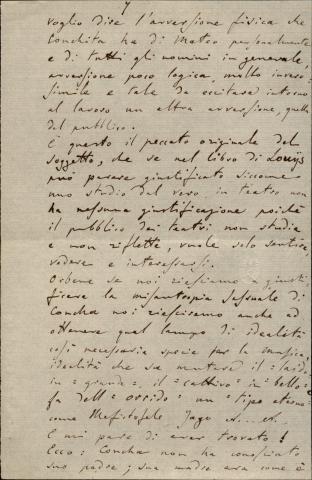 7
voglio dire l'avversione fisica che
Conchita ha di Matteo personalmente
e di tutti gli uomini in generale,
avversione poco logica, molto invero-
simile e tale da eccitare intorno
al lavoro un altra avversione, quella
del pubblico.
È questo il peccato originale del
soggetto, che se nel libro di Louÿs
può parere giustificato siccome
uno studio dal vero, in teatro non
ha nessuna giustificazione poichè
il pubblico dei teatri non studia
e non riflette, vuole solo sentire
vedere e interessarsi.
Orbene se noi riesciamo a giusti-
ficare la misantropia sessuale di
Concha noi riesciremo anche ad
ottenere quel lampo di idealità
così necessaria specie per la musica,
idealità che sa mutare il "laido"
in "grande", il "cattivo" in "bello" e
fa dell' "orrido" un "tipo eterno"
come Mefistofele Jago
E mi pare di aver trovato!
Ecco: Concha non ha conosciuto
suo padre; sua madre era come è